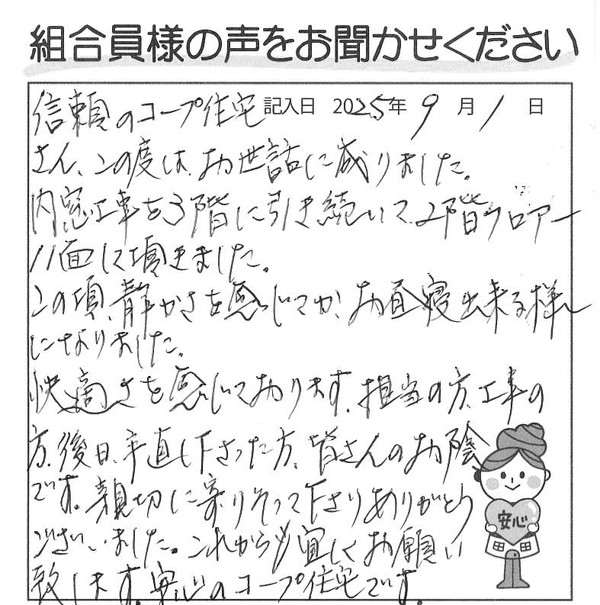 組合員様の声をお聞かせください
記入日 2025年 9月 1日
信頼のコープ住宅
さん、この度は、お世話に成りました。
内窓工事を3階に引き続いて、2階フロアー
11面して頂きました。
この頃、静かさを感じてか、お昼寝出来る様
になりました。
快適さを感じております。担当の方、工事の
方、後日、手直し下さった方、皆さんのお陰
です。親切に寄りそって下さりありがとう
ございました。これからも宜しくお願い
致します。安心のコープ住宅です。
安心